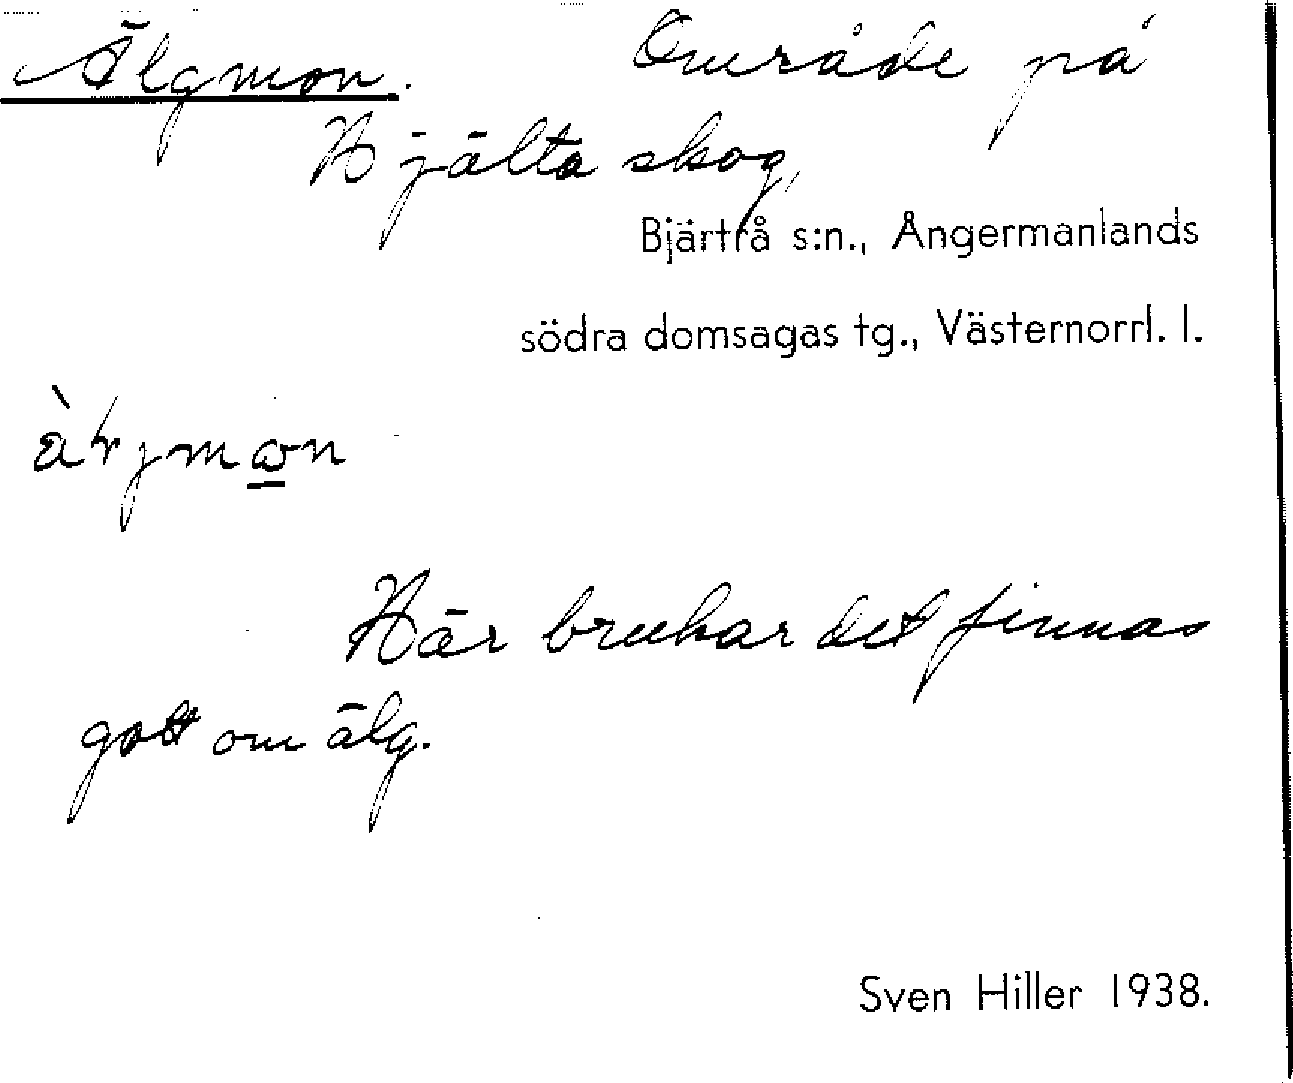 Älgmon. Område på
Hjälta skog,
Bjärtrå s:n., Ångermanlands
södra domsagas tg., Västernorrl. l.
Här brukar det finnas
gott om älg.
Sven Hiller 1938.